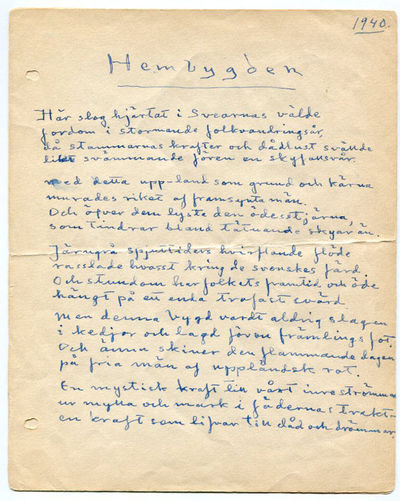 1940.
Hembygden
Här slog hjärtat i Svearnas välde
fordom i stormande folkvandringsår,
då stammarnas krafter och dådlust svällde
likt svämmande fåren en skyfallsvår.
med detta upp-land som grund och kärna
murades riket af framsynta män.
Och öfver dem lyste den ödesstjärna,
som tindrar bland tätnande skyar än.
Järngrå spjuttiders hvirflande flöde
rasslade hvasst kring de svenskes färd.
Och stundom har folkets framtid och öde
hängt på en enda trofast svärd
men denna bygd vardt aldrig slagen
i kedjor och lagd för en främlings fot.
Och ännu skiner den flammande dagen
på fria män af uppländsk rot.
En mystisk kraft till vårt inre strömmar
ur mylla och mark i fädernas trakt-
en kraft som lifvar till dåd och drömmar,